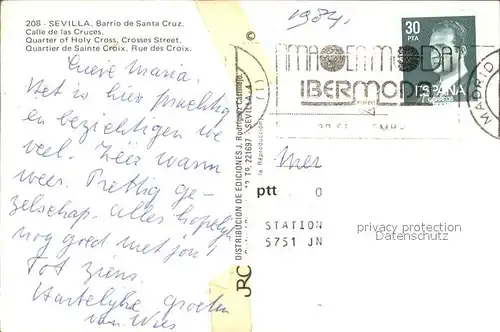 208 - SEVILLA. Barrio de Santa Cruz.
Calle de las Cruces.
Quarter of Holy Cross, Crosses Street.
Quartier de Sainte Croix. Rue des Croix.
Lieve Maria.
Het is hier prachtig
en bezichtigen we
veel. Zeer warm
weer. Prettig ge-
zelschap. Alles hopelijk
nog goed met jou!
Tot ziens
Hartelijke groeten
van Wies
JRC DISTRIBUCION DE EDICIONES J. Rodríguez
221697 - SEVILLA
la Reproducción
(1)
1984.
IMAGENMODA
IBERMODA
MADRID
30
PTA
ESPAÑA
CORREOS
Mer
ptt 0
STATION
5751 JN
privacy protection
Datenschutz